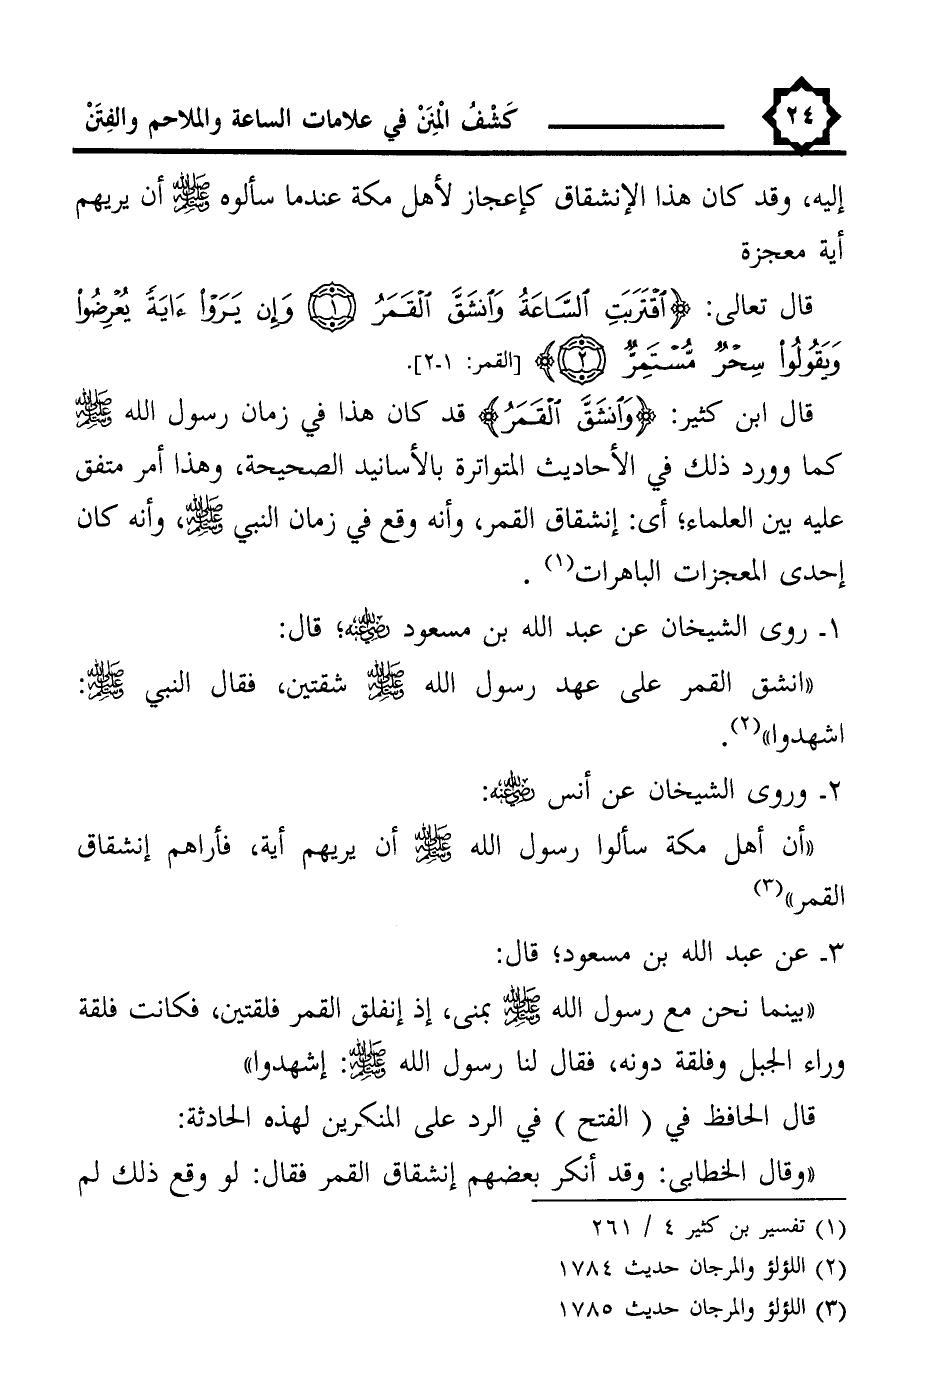 ٢٤ كَشْفُ الْمِنَنْ في علامات الساعة والملاحم والفِتَنْ
إليه، وقد كان هذا الإنشقاق كإعجاز لأهل مكة عندما سألوه ﷺ أن يريهم
أية معجزة
قال تعالى: ﴿ٱقۡتَرَبَتِ ٱلسَّاعَةُ وَٱنشَقَّ ٱلۡقَمَرُ ۝١ وَإِن يَرَوۡاْ ءَايَةٗ يُعۡرِضُواْ
وَيَقُولُواْ سِحۡرٞ مُّسۡتَمِرّٞ ۝٢﴾ [القمر: ١-٢].
قال ابن كثير: ﴿وَٱنشَقَّ ٱلۡقَمَرُ﴾ قد كان هذا في زمان رسول الله ﷺ
كما وورد ذلك في الأحاديث المتواترة بالأسانيد الصحيحة، وهذا أمر متفق
عليه بين العلماء؛ أى: إنشقاق القمر، وأنه وقع في زمان النبي ﷺ، وأنه كان
إحدى المعجزات الباهرات(١) .
١ـ روى الشيخان عن عبد الله بن مسعود رضي الله عنه؛ قال:
«انشق القمر على عهد رسول الله ﷺ شقتين، فقال النبي ﷺ:
اشهدوا»(٢).
٢ـ وروى الشيخان عن أنس رضي الله عنه:
«أن أهل مكة سألوا رسول الله ﷺ أن يريهم أية، فأراهم إنشقاق
القمر»(٣)
٣ـ عن عبد الله بن مسعود؛ قال:
«بينما نحن مع رسول الله ﷺ بمنى، إذ إنفلق القمر فلقتين، فكانت فلقة
وراء الجبل وفلقة دونه، فقال لنا رسول الله ﷺ: إشهدوا»
قال الحافظ في ( الفتح ) في الرد على المنكرين لهذه الحادثة:
«وقال الخطابى: وقد أنكر بعضهم إنشقاق القمر فقال: لو وقع ذلك لم
(١) تفسير بن كثير ٤ / ٢٦١
(٢) اللؤلؤ والمرجان حديث ١٧٨٤
(٣) اللؤلؤ والمرجان حديث ١٧٨٥